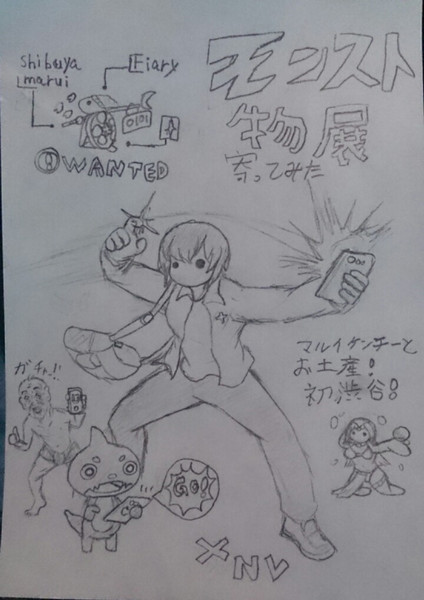 Shibuya
marui
Eiary
モンスト
物展
寄ってみた
0101
WANTED
ガチャ!!
マルイケンチーと
お土産!
初渋谷!
GO!
XNV